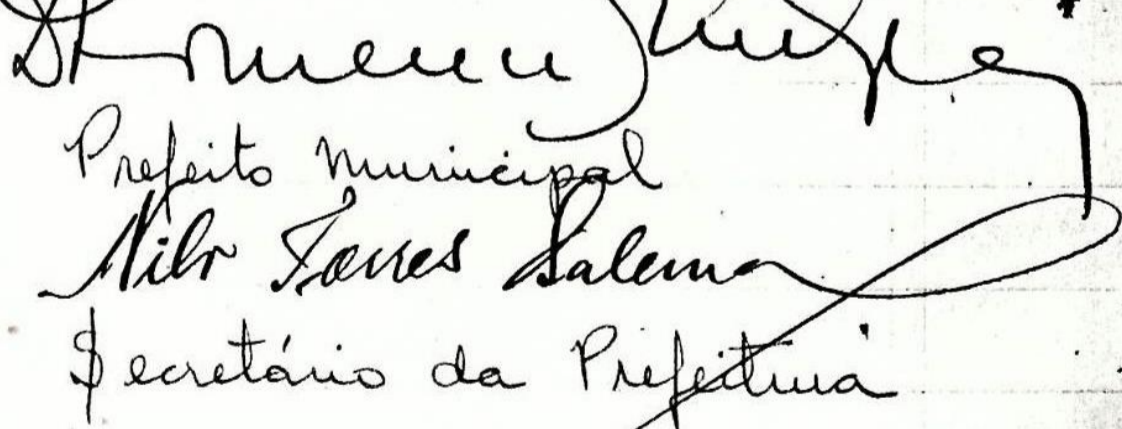 Prefeito Municipal
Nilo Torres Salema
Secretário da Prefeitura